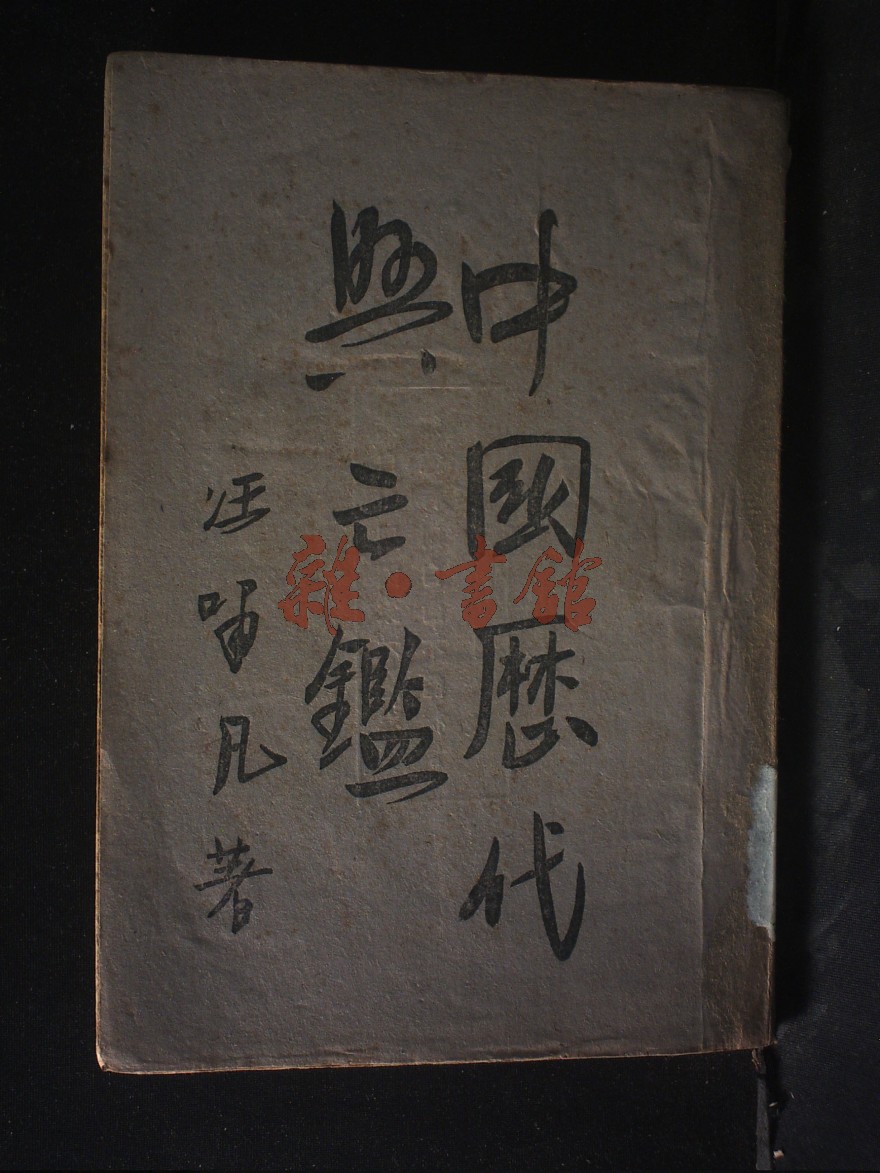 中國歷代
興亡鑑
汪啸凡著
雜·書館